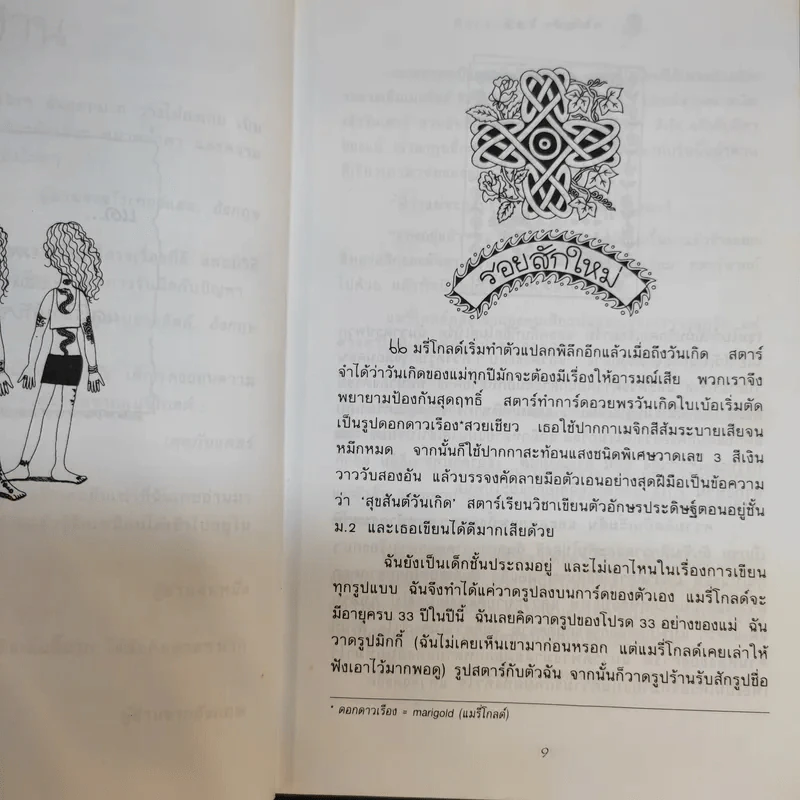 รอยสักใหม่
แมรี่โกลด์เริ่มทำตัวแปลกพิลึกอีกแล้วเมื่อถึงวันเกิด สตาร์
จำได้ว่าวันเกิดของแม่ทุกปีมักจะต้องมีเรื่องให้อารมณ์เสีย พวกเราจึง
พยายามป้องกันสุดฤทธิ์ สตาร์ทำการ์ดอวยพรวันเกิดใบเบ้อเริ่มตัด
เป็นรูปดอกดาวเรือง*สวยเชียว เธอใช้ปากกาเมจิกสีส้มระบายเสียจน
หมึกหมด จากนั้นก็ใช้ปากกาสะท้อนแสงชนิดพิเศษวาดเลข 3 สีเงิน
วาววับสองอัน แล้วบรรจงคัดลายมือตัวเอนอย่างสุดฝีมือเป็นข้อความ
ว่า 'สุขสันต์วันเกิด' สตาร์เรียนวิชาเขียนตัวอักษรประดิษฐ์ตอนอยู่ชั้น
ม.2 และเธอเขียนได้ดีมากเสียด้วย
ฉันยังเป็นเด็กชั้นประถมอยู่ และไม่เอาไหนในเรื่องการเขียน
ทุกรูปแบบ ฉันจึงทำได้แค่วาดรูปลงบนการ์ดของตัวเอง แมรี่โกลด์จะ
มีอายุครบ 33 ปีในปีนี้ ฉันเลยคิดวาดรูปของโปรด 33 อย่างของแม่ ฉัน
วาดรูปมิกกี้ (ฉันไม่เคยเห็นเขามาก่อนหรอก แต่แมรี่โกลด์เคยเล่าให้
ฟังเอาไว้มากพอดู) รูปสตาร์กับตัวฉัน จากนั้นก็วาดรูปร้านรับสักรูปชื่อ
* ดอกดาวเรือง = marigold (แมรี่โกลด์)
9